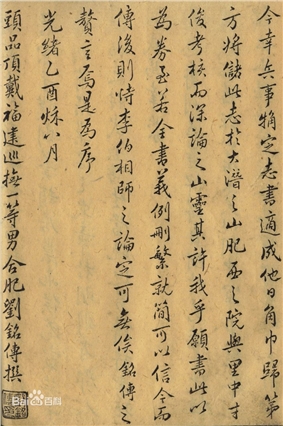 今幸兵事稍定志書適成他日角巾歸第
方將儲此志於大潛之山肥西之院與里中才
俊考校而深論之山靈其許我乎願書此以
為券至若全書義例刪繁就簡可以信今而
傳後則恃李伯相師之論定可無俟銘傳之
贅言焉是為序
光緒乙酉秌八月
頭品頂戴福建巡撫一等男合肥劉銘傳撰
Bai百科